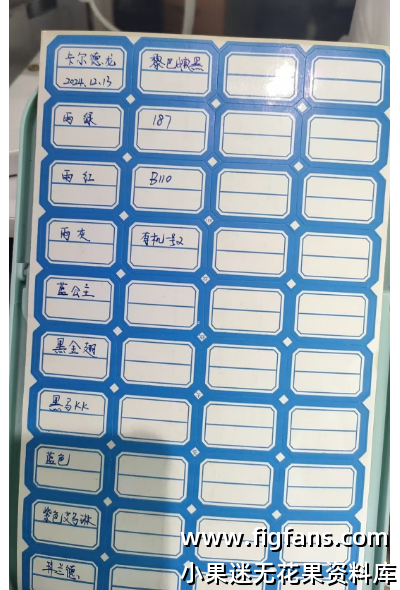 卡尔德龙
2024.12.13
黎巴嫩黑
雨绿
187
雨红
B110
雨灰
有机一号2
蓝公主
黑金翅
黑马KK
蓝色
紫色皮马淋
菲兰德
www.figfans.com
小果迷无花果资料库